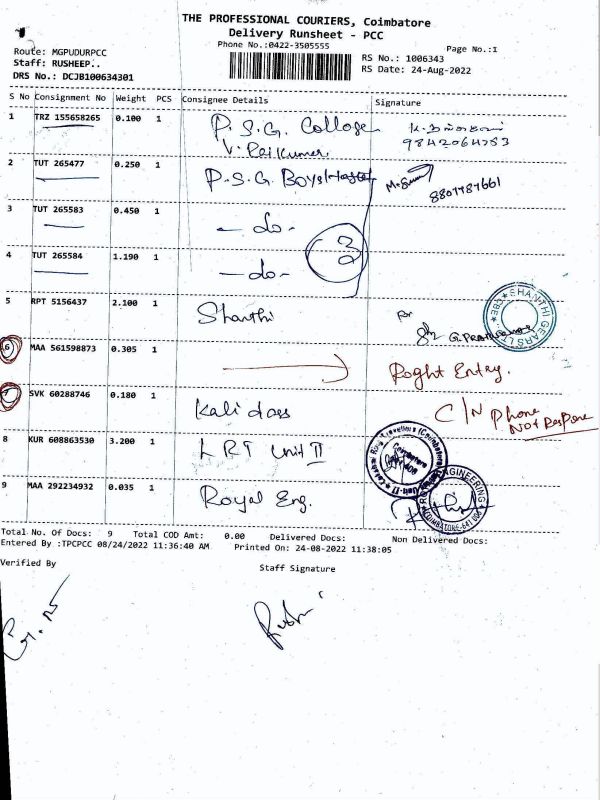 THE PROFESSIONAL COURIERS, Coimbatore
Delivery Runsheet - PCC
Phone No.:0422-3505555
Page No.:1
Route: MGPUDURPCC
Staff: RUSHEEP..
DRS No.: DCJB100634301
RS No.: 1006343
RS Date: 24-Aug-2022
S No Consignment No Weight PCS Consignee Details Signature
1 TRZ 155658265 0.100 1 P.S.G. College
V. Raikumar
9842064753
2 TUT 265477 0.250 1 P.S.G Boys Hostel
8807787661
3 TUT 265583 0.450 1 - do -
4 TUT 265584 1.190 1 - do -
5 RPT 5156437 2.100 1 Shanthi for
SHANTHI GEARS LT CBE
6 MAA 561598873 0.305 1 Roght Entry.
7 SVK 60288746 0.180 1 Kalidass C/N Phone
Not Respone
8 KUR 608863530 3.200 1 LRT Unit II
9 MAA 292234932 0.035 1 Royal Eng.
Total No. Of Docs: 9 Total COD Amt: 0.00 Delivered Docs: Non Delivered Docs:
Entered By :TPCPCC 08/24/2022 11:36:40 AM Printed On: 24-08-2022 11:38:05
Verified By
Staff Signature